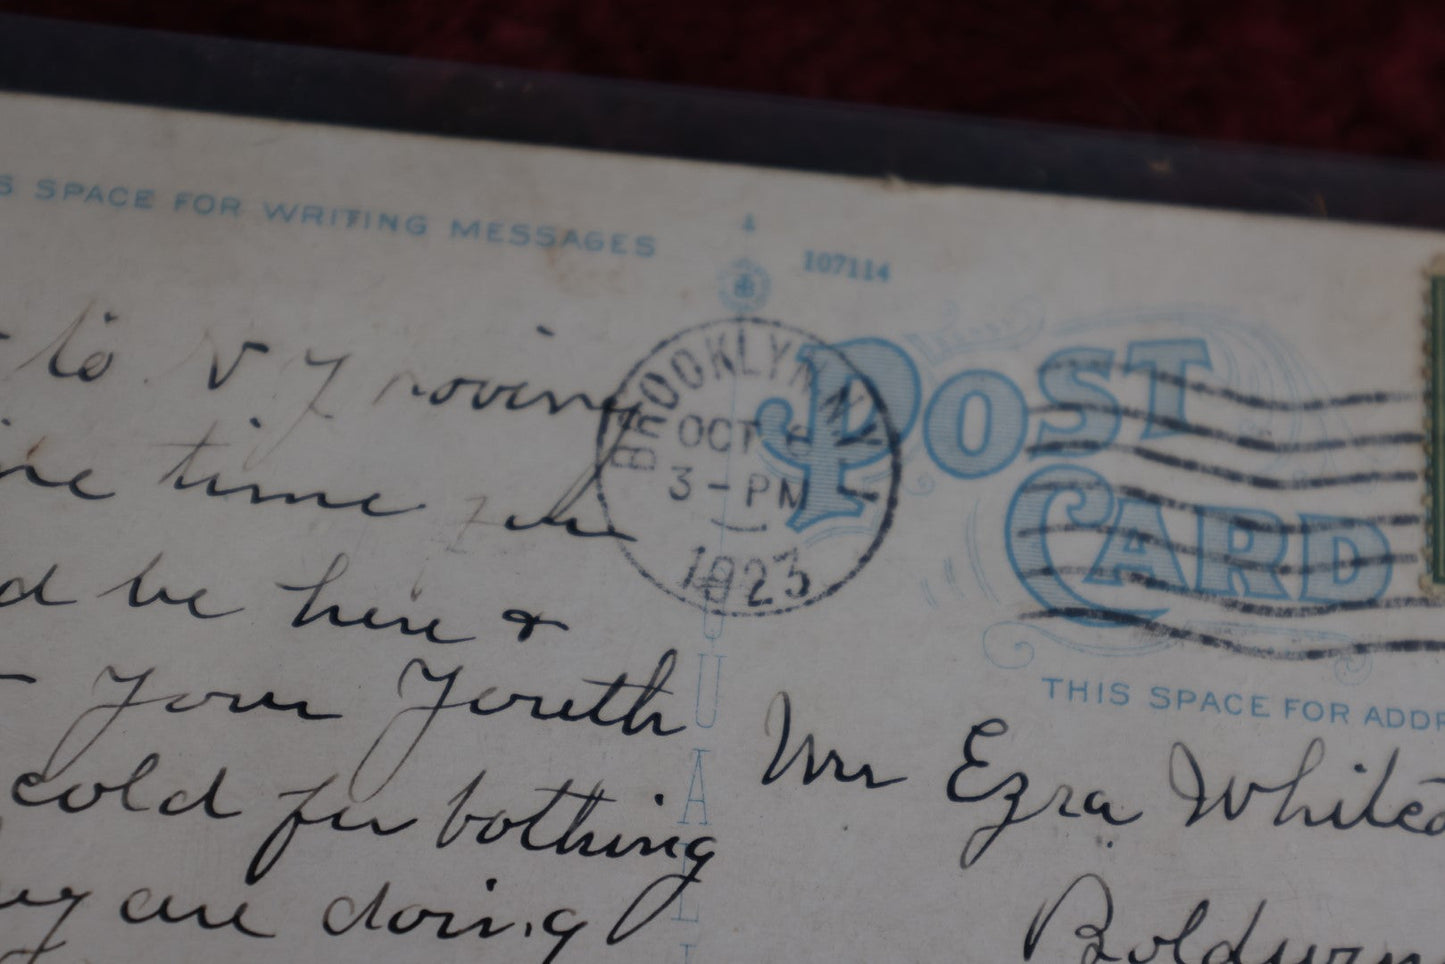 S SPACE FOR WRITING MESSAGES
107114
POST CARD
BROOKLYN N.Y.
OCT 6
3-PM
1923
THIS SPACE FOR ADDR
to N Y roving
time
be here &
Your Youth
cold for bothing
are doing
QUALI
Mr Ezra White
Boldwin